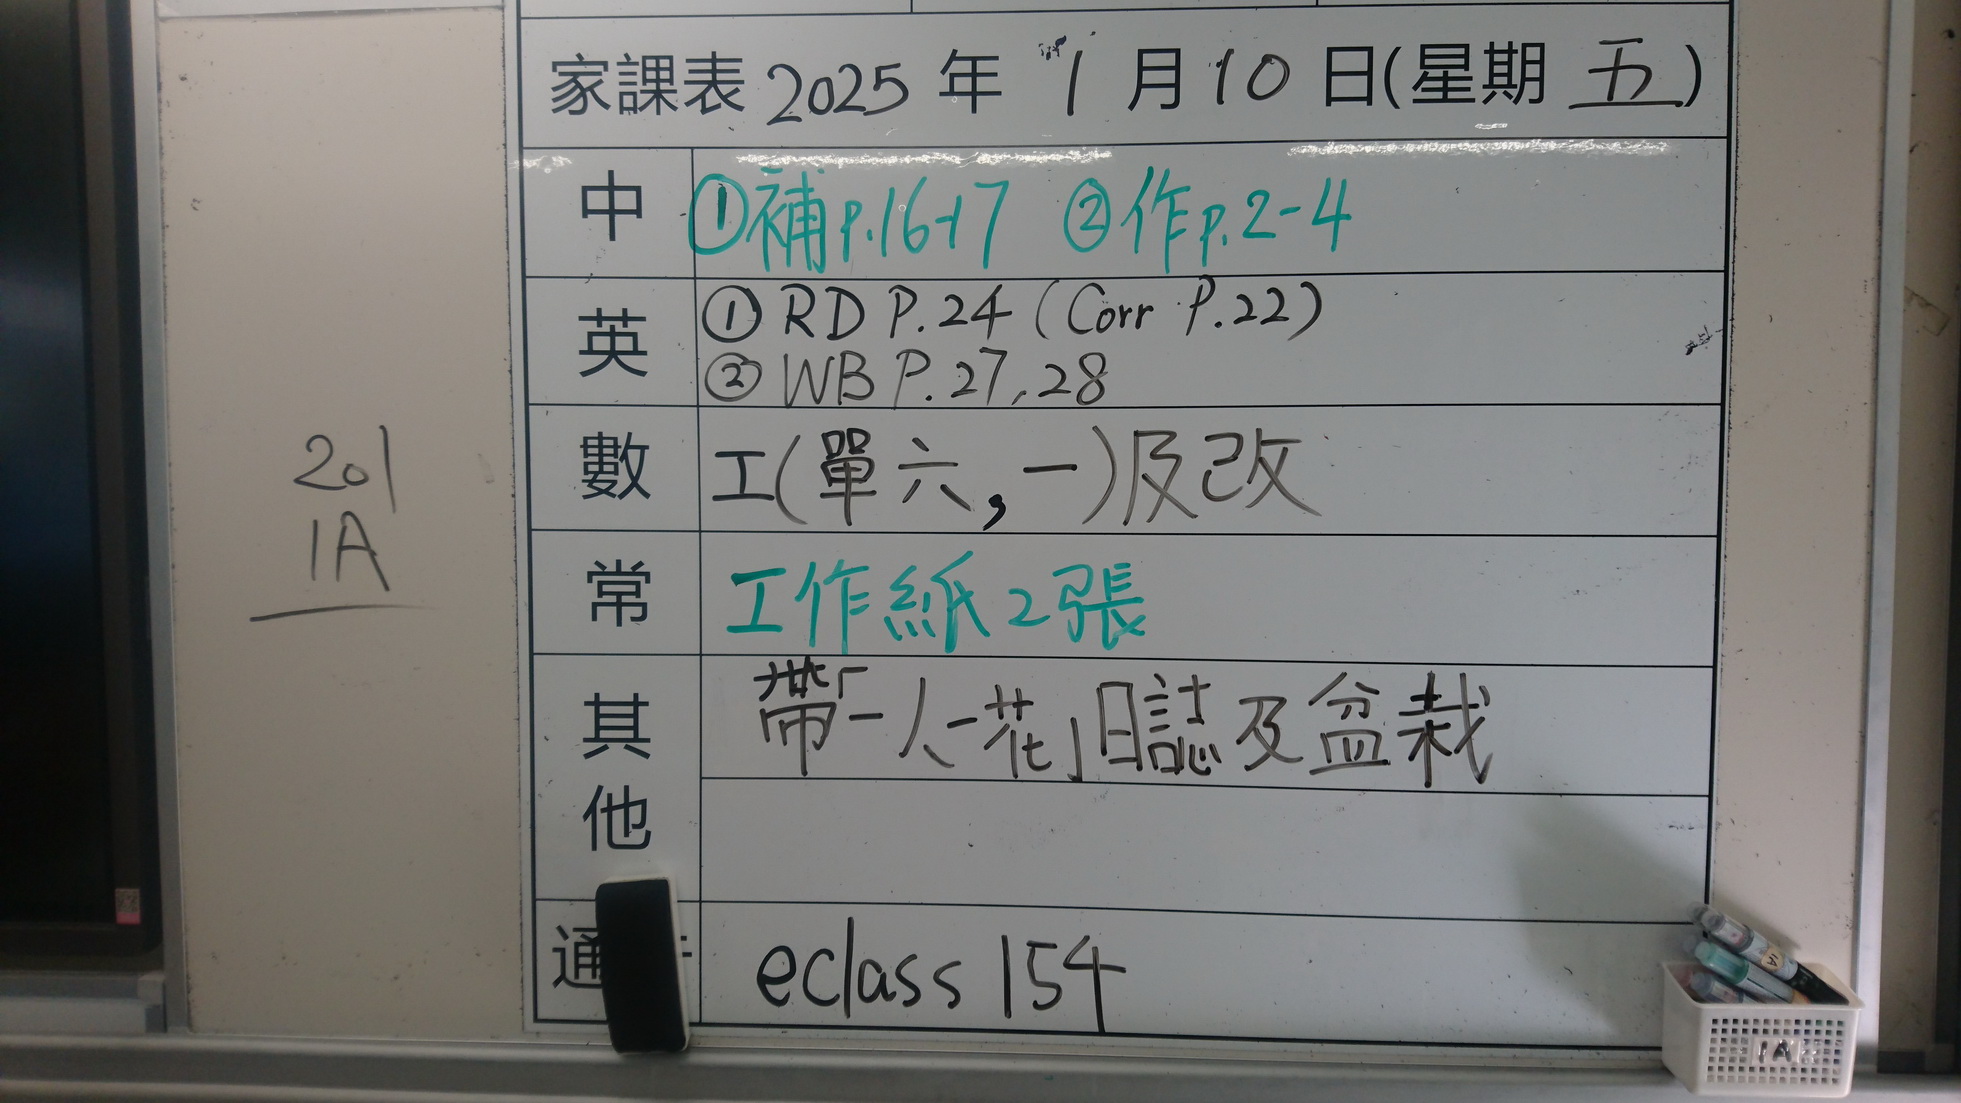 家課表 2025 年 1 月 10 日(星期 五)
中 ①補p.16-17 ②作p.2-4
英 ① RD P.24 (Corr P.22)
② WB P.27,28
數 工(單六,一)及改
常 工作紙2張
其他 帶「一人一花」日誌及盆栽
通 eclass 154
201
1A
1A